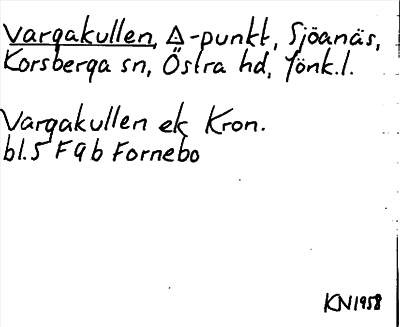 Vargakullen, △-punkt, Sjöanäs,
Korsberga sn, Östra hd, Jönk.l.
Vargakullen ek Kron.
bl.5 F9b Fornebo
KN1958